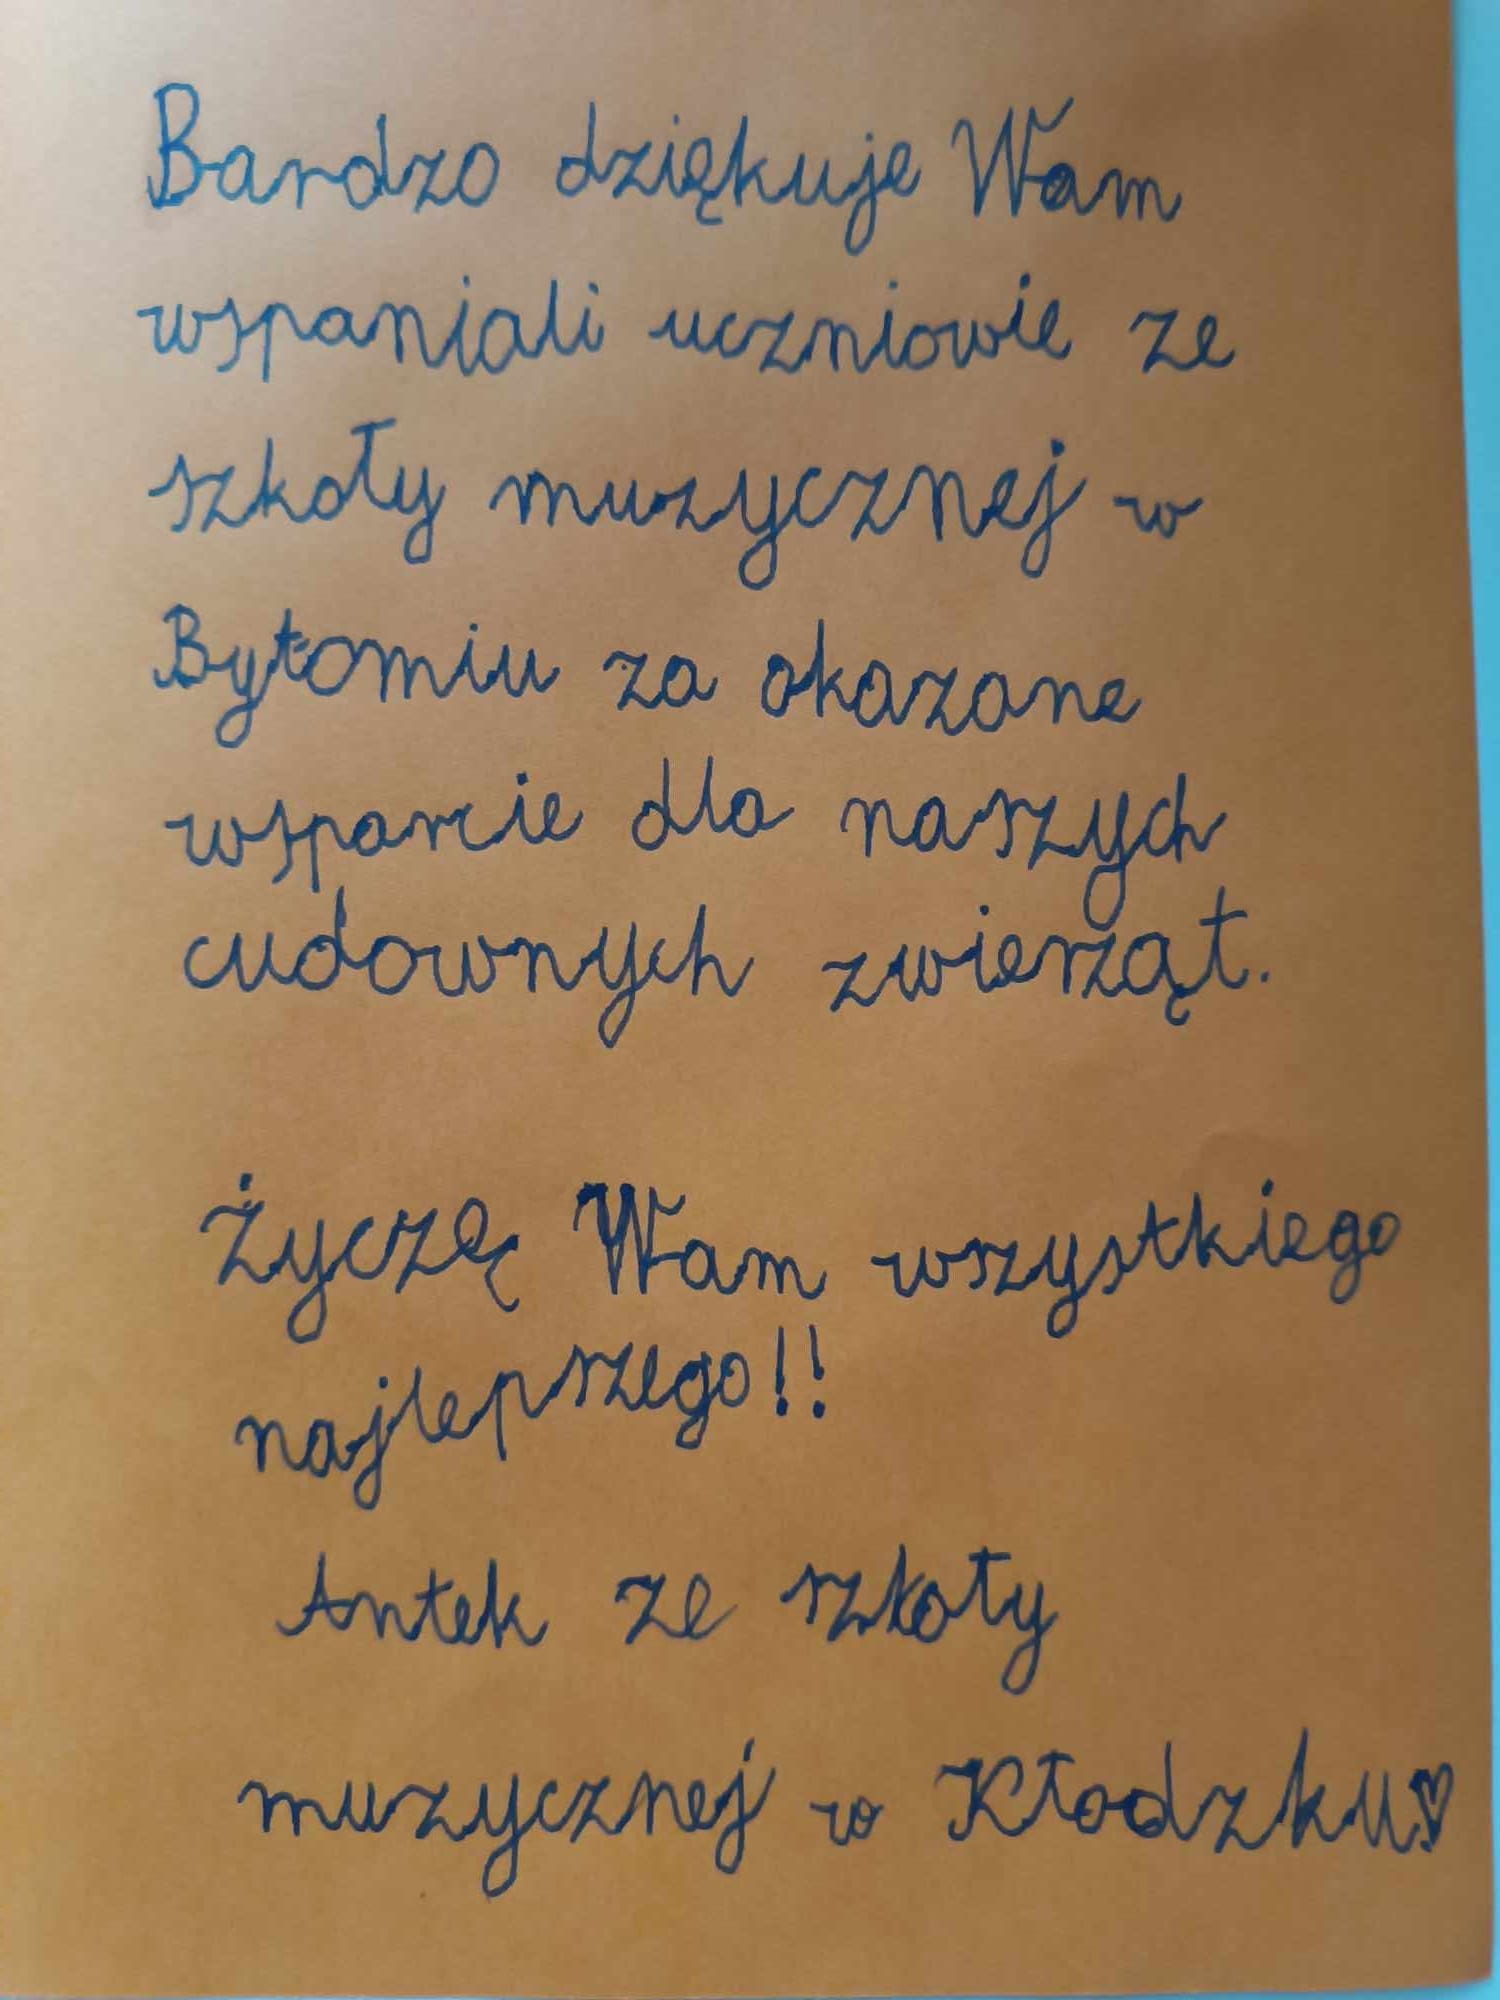 Bardzo dziękuje Wam
wspaniali uczniowie ze
szkoły muzycznej w
Bytomiu za okazane
wsparcie dla naszych
cudownych zwierząt.
Życzę Wam wszystkiego
najlepszego!!
Antek ze szkoły
muzycznej w Kłodzku♡